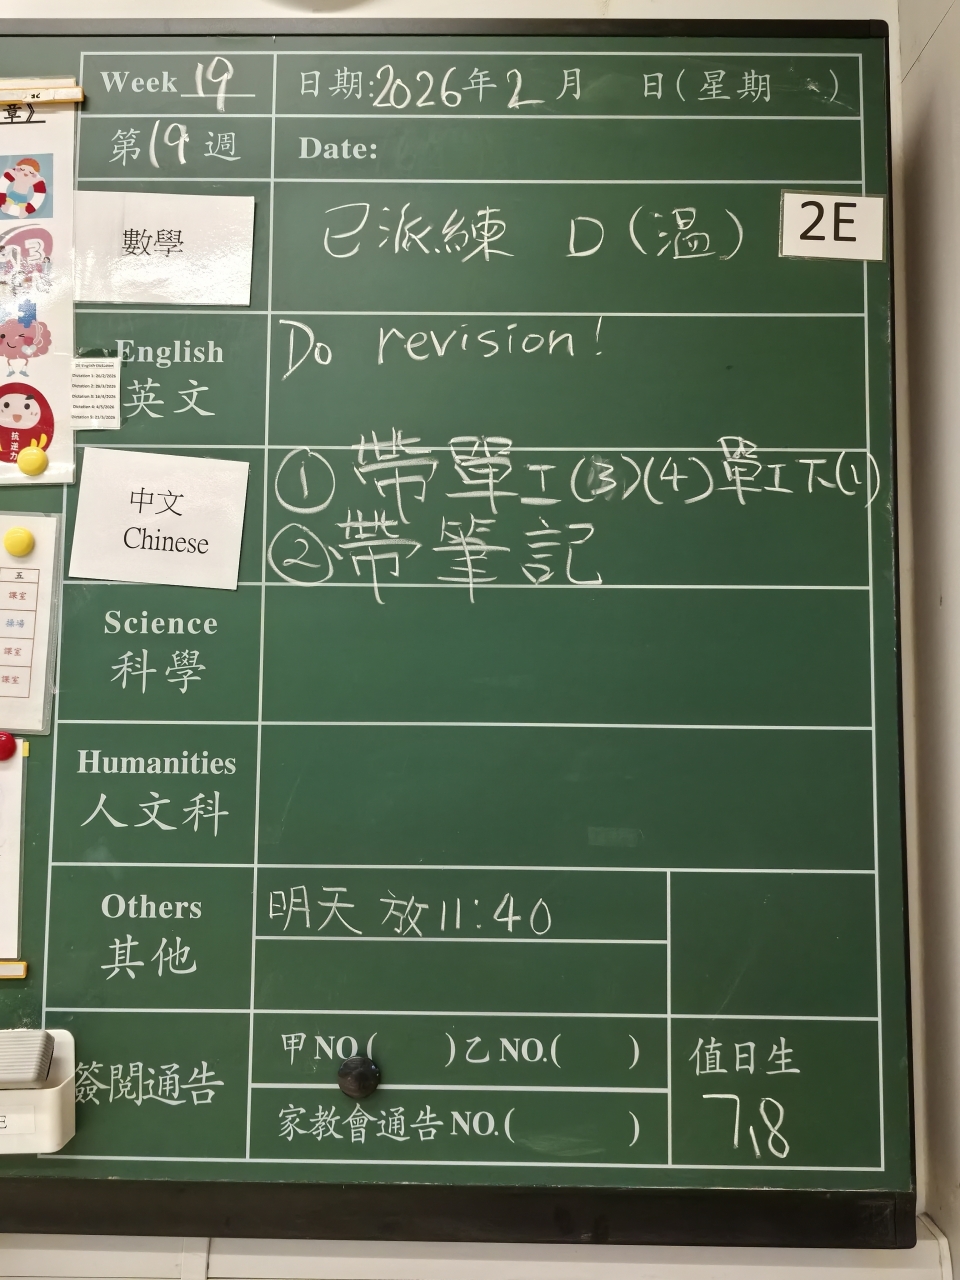 Week 19
日期:2026年2月 日(星期 )
第19週
Date:
章》
數學
已派練 D(溫)
2E
English
英文
Do revision!
2E English Dictation
Dictation 1: 26/2/2026
中文
Chinese
①帶單工(3)(4)單工下(1)
②帶筆記
五
課室
操場
課室
課室
抗逆力
Science
科學
Humanities
人文科
Others
其他
明天放11:40
簽閱通告
甲NO.( )乙NO.( )
家教會通告NO.( )
值日生
7,8
E